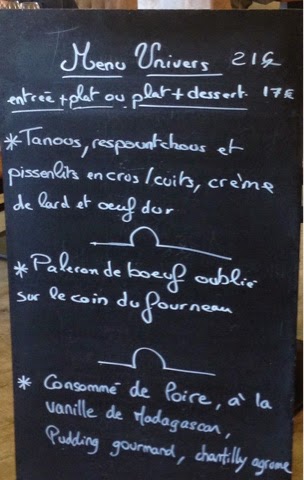 Menu Univers 21€
entrée + plat ou plat + dessert. 17€
* Tanous, respountchous et
pissenlits en crus/cuits, crème
de lard et oeuf dur
* Paleron de boeuf oublié
sur le coin du fourneau
* Consommé de Poire, à la
vanille de Madagascar,
Pudding gourmand, chantilly agrume